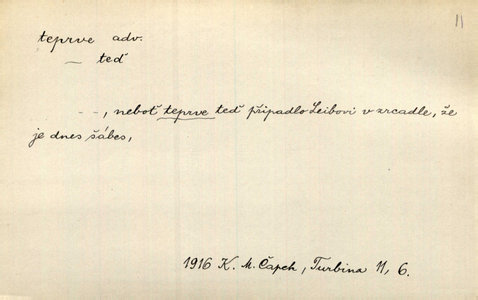 11
teprve adv.
— teď
- -, neboť teprve teď připadlo Leibovi v zrcadle, že
je dnes šábes,
1916 K. M. Čapek, Turbina 11, 6.